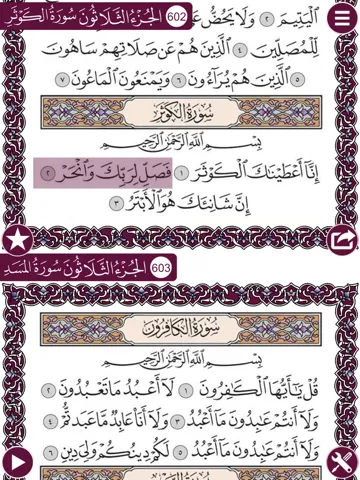 602 الجزء الثلاثون سورة الكوثر
ٱلۡيَتِيمَ ٢ وَلَا يَحُضُّ
لِّلۡمُصَلِّينَ ٤ ٱلَّذِينَ هُمۡ عَن صَلَاتِهِمۡ سَاهُونَ
٥ ٱلَّذِينَ هُمۡ يُرَآءُونَ ٦ وَيَمۡنَعُونَ ٱلۡمَاعُونَ ٧
سُورَةُ الكَوۡثَرِ
بِسۡمِ ٱللَّهِ ٱلرَّحۡمَٰنِ ٱلرَّحِيمِ
إِنَّآ أَعۡطَيۡنَٰكَ ٱلۡكَوۡثَرَ ١ فَصَلِّ لِرَبِّكَ وَٱنۡحَرۡ ٢
إِنَّ شَانِئَكَ هُوَ ٱلۡأَبۡتَرُ ٣
603 الجزء الثلاثون سورة المسد
سُورَةُ الكَافِرُونَ
بِسۡمِ ٱللَّهِ ٱلرَّحۡمَٰنِ ٱلرَّحِيمِ
قُلۡ يَٰٓأَيُّهَا ٱلۡكَٰفِرُونَ ١ لَآ أَعۡبُدُ مَا تَعۡبُدُونَ ٢
وَلَآ أَنتُمۡ عَٰبِدُونَ مَآ أَعۡبُدُ ٣ وَلَآ أَنَا۠ عَابِدٞ مَّا عَبَدتُّمۡ ٤
وَلَآ أَنتُمۡ عَٰبِدُونَ مَآ أَعۡبُدُ ٥ لَكُمۡ دِينُكُمۡ وَلِيَ دِينِ ٦